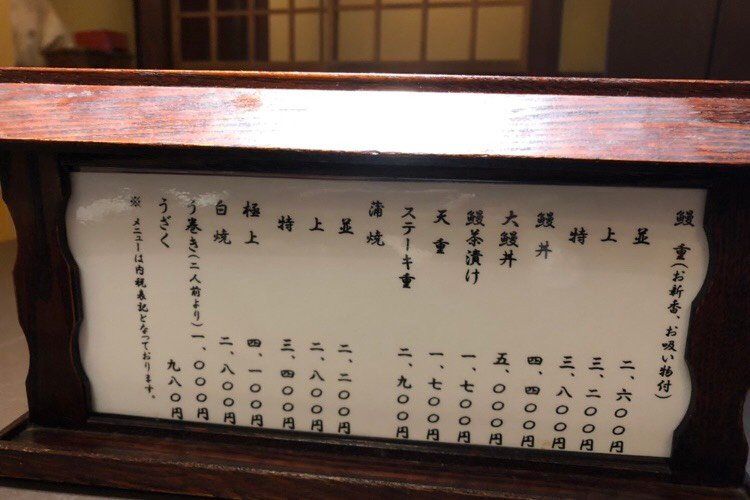 鰻重(お新香、お吸い物付)
並 二、六〇〇円
上 三、二〇〇円
特 三、八〇〇円
鰻丼 四、四〇〇円
大鰻丼 五、〇〇〇円
鰻茶漬け 一、七〇〇円
天重 一、七〇〇円
ステーキ重 二、九〇〇円
蒲焼
並 二、二〇〇円
上 二、八〇〇円
特 三、四〇〇円
極上 四、一〇〇円
白焼 二、八〇〇円
う巻き(二人前より) 一、〇〇〇円
うざく 九八〇円
※ メニューは内税表記となっております。